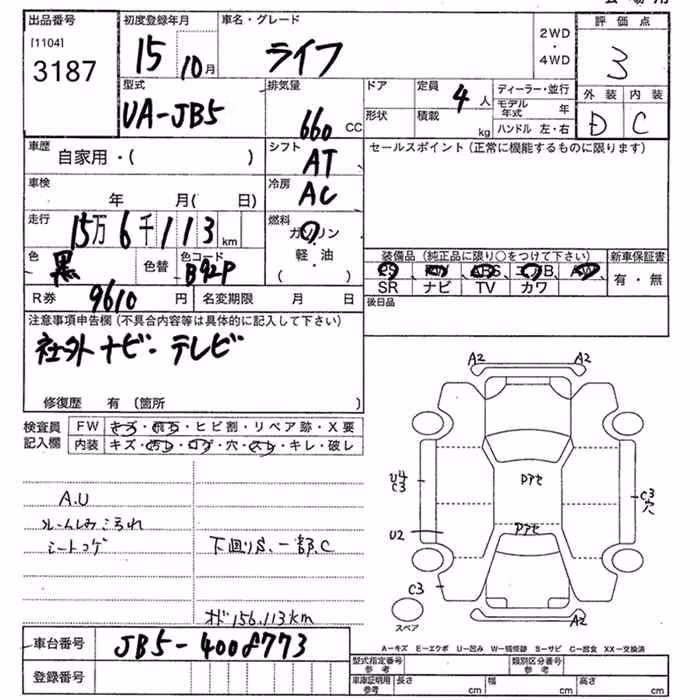 出品番号
[1104]
3187
初度登録年月
15 10月
車名・グレード
ライフ
2WD
・
4WD
評価点
3
外装 内装
D C
型式
UA-JB5
排気量
660 CC
ドア
形状
定員 4 人
積載 kg
ディーラー・並行
モデル年式 年
ハンドル 左・右
車歴
自家用・( )
シフト
AT
セールスポイント(正常に機能するものに限ります)
車検
年 月( 日)
冷房
AC
走行
15万6千113km
燃料
ガソリン
軽・油
( )
色
黒
色替
色コード
B92P
装備品(純正品に限り○をつけて下さい)
新車保証書
SR ナビ TV カワ
有・無
R券 9610 円
名変期限 月 日
後日品
注意事項申告欄(不具合内容等は具体的に記入して下さい)
社外ナビ・テレビ
修復歴 有 (箇所 )
検査員
記入欄
FW キズ・飛石・ヒビ割・リペア跡・X要
内装 キズ・汚レ・コゲ・穴・スレ・キレ・破レ
A.U
ルームしみ汚れ
シートコゲ
下廻りS、一部C
オド156,113km
A2
A2
U4
C3
ドアセ
C3
穴
U2
ドアセ
C3
A2
スペア
車台番号 JB5-4008773
登録番号
A−キズ E−エクボ U−凹み W−補修跡 S−サビ C−腐食 XX−交換済
型式指定番号
参考
類別区分番号
参考
車庫証明用
参考
長さ cm
幅 cm
高さ cm